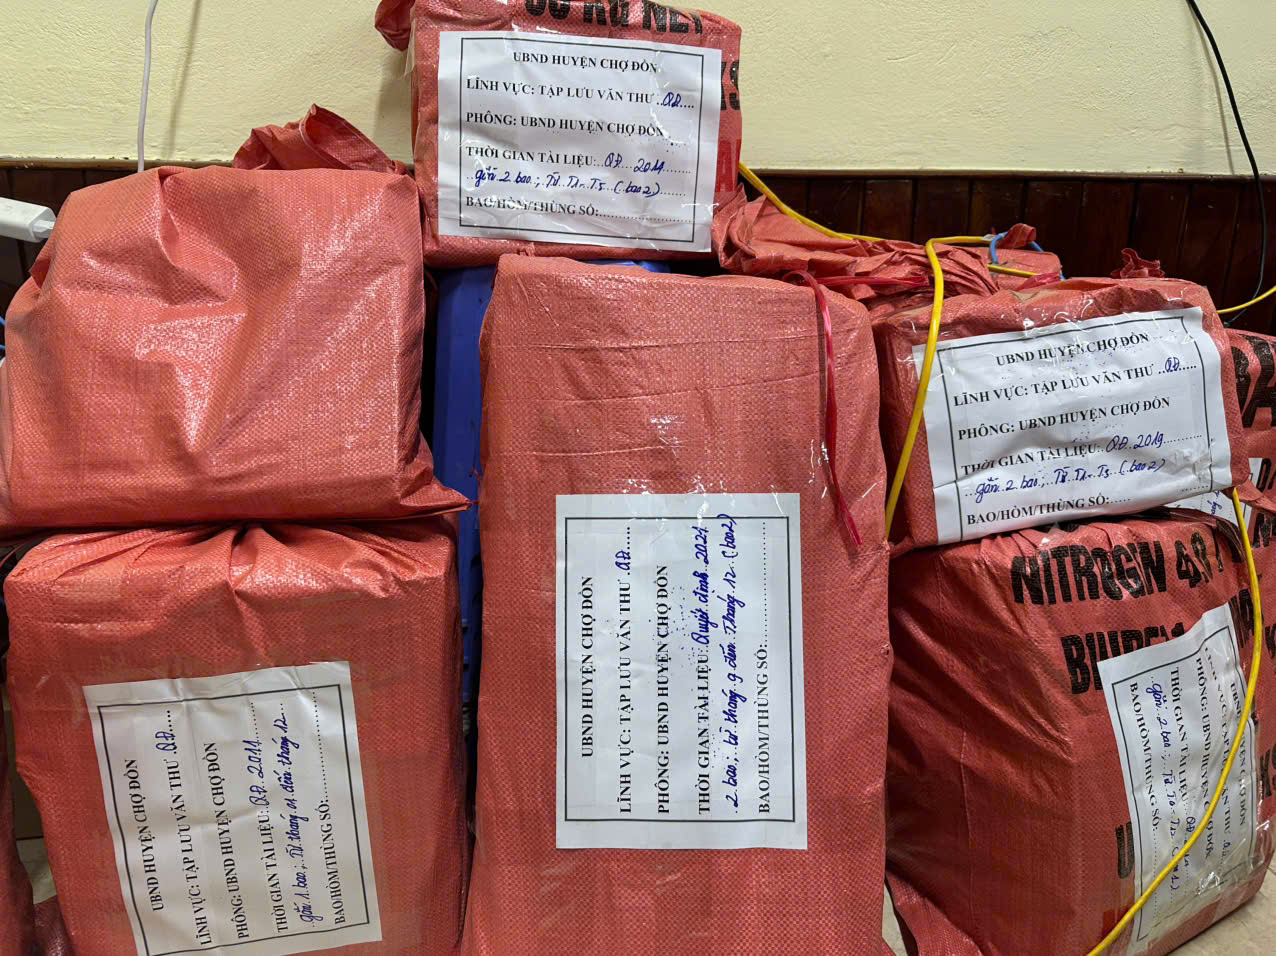 UBND HUYỆN CHỢ ĐỒN
LĨNH VỰC: TẬP LƯU VĂN THƯ ..QĐ....
PHÔNG: UBND HUYỆN CHỢ ĐỒN
THỜI GIAN TÀI LIỆU:..QĐ...2019.......
gồm 2 bao; Từ T1- T5 (bao 2)
BAO/HÒM/THÙNG SỐ:
UBND HUYỆN CHỢ ĐỒN
LĨNH VỰC: TẬP LƯU VĂN THƯ ..QĐ....
PHÔNG: UBND HUYỆN CHỢ ĐỒN
THỜI GIAN TÀI LIỆU:..QĐ.2019.......
gồm 2 bao; Từ T1- T5 (bao 2)
BAO/HÒM/THÙNG SỐ:
UBND HUYỆN CHỢ ĐỒN
LĨNH VỰC: TẬP LƯU VĂN THƯ QĐ....
PHÔNG: UBND HUYỆN CHỢ ĐỒN
THỜI GIAN TÀI LIỆU: Quyết định 2021
2 bao; từ tháng 9 đến tháng 12 (bao 2)
BAO/HÒM/THÙNG SỐ:
UBND HUYỆN CHỢ ĐỒN
LĨNH VỰC: TẬP LƯU VĂN THƯ QĐ....
PHÔNG: UBND HUYỆN CHỢ ĐỒN
THỜI GIAN TÀI LIỆU: QĐ 2011
gồm 1 bao; Từ tháng 01 đến tháng 12
BAO/HÒM/THÙNG SỐ:
NITROGIN
BIURET
THỜI GIAN TÀI LIỆU:
gồm 2 bao;
BAO/HÒM/THÙNG SỐ: